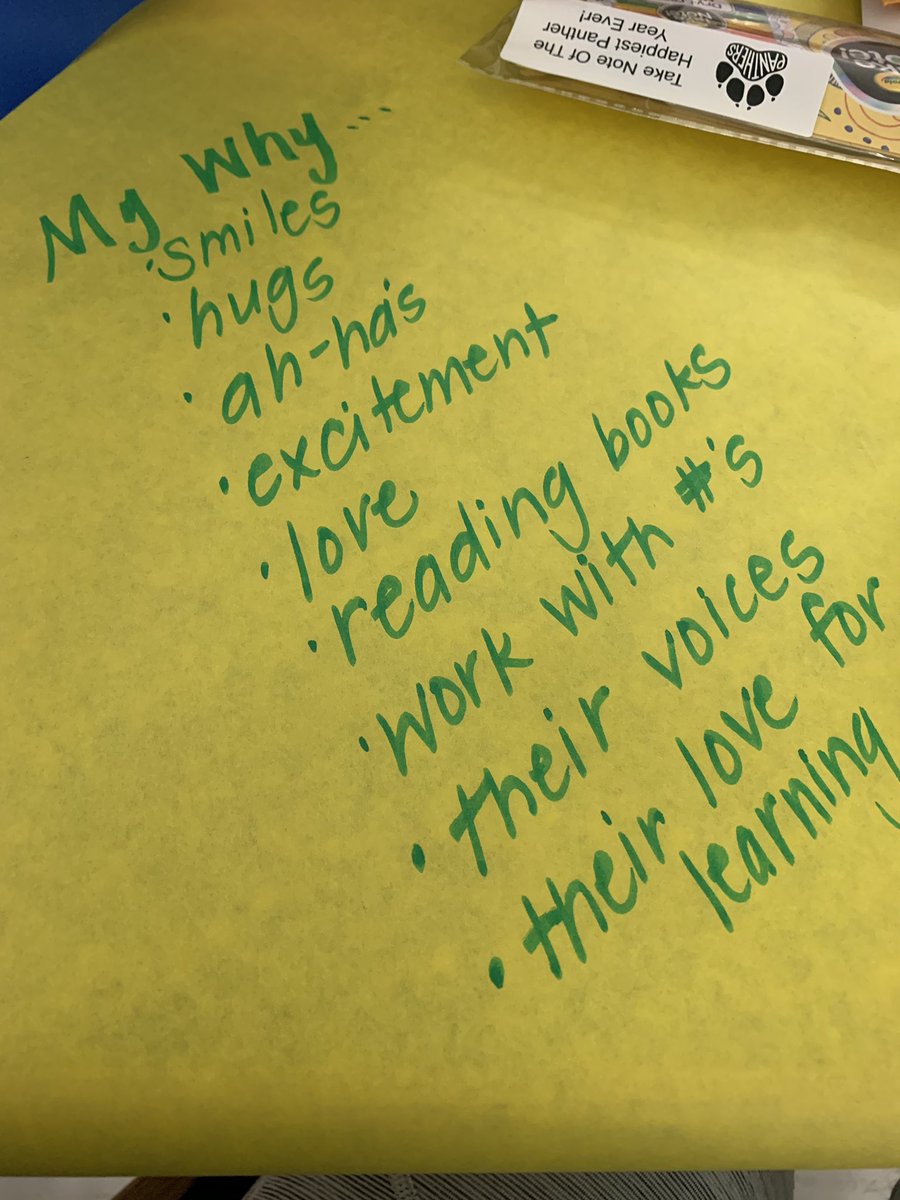 Take Note Of The
Happiest Panther
Year Ever!
PANTHERS
My Why...
• smiles
• hugs
• ah-ha's
• excitement
• love
• reading books
• work with #'s
• their voices
• their love for
learning